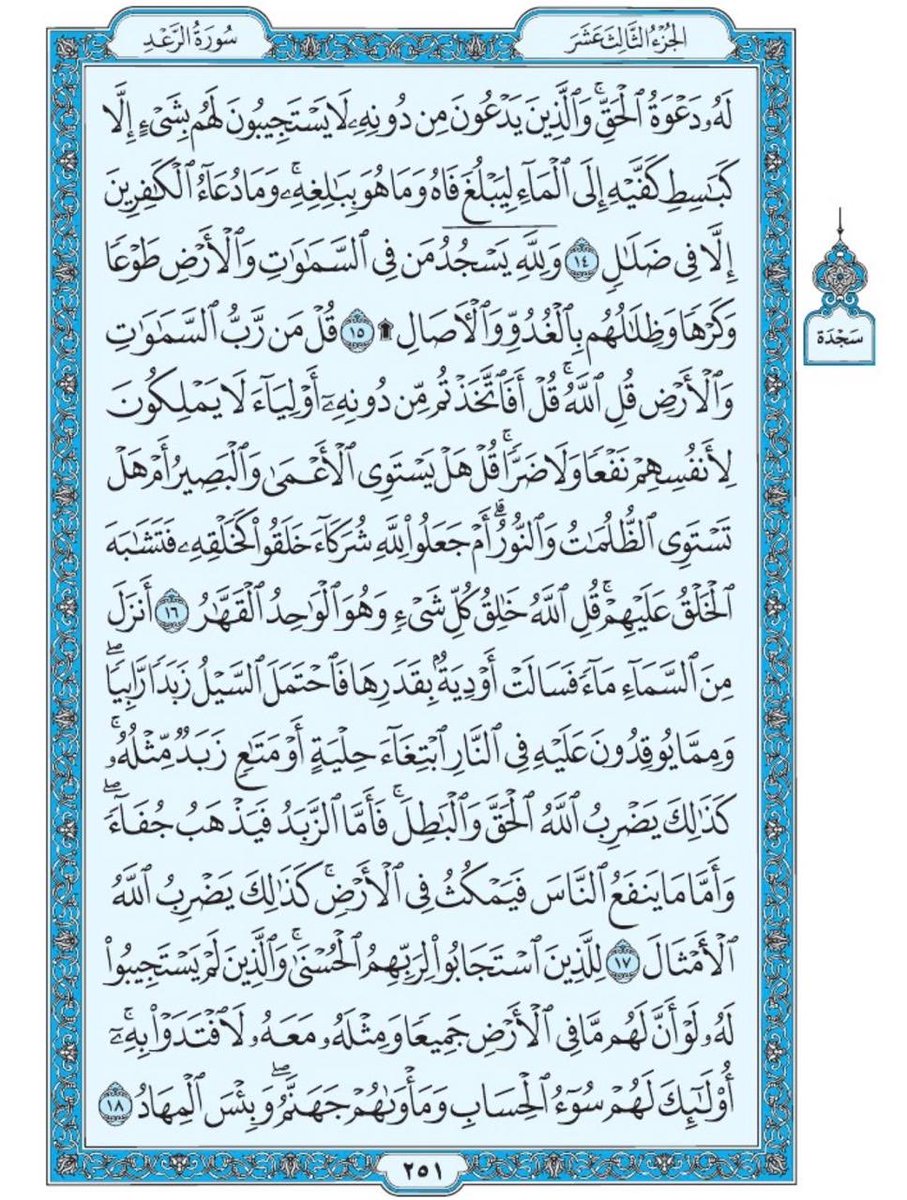 الجُزْءُ الثَّالِثَ عَشَرَ
سُورَةُ الرَّعْدِ
لَهُۥ دَعْوَةُ ٱلْحَقِّۚ وَٱلَّذِينَ يَدْعُونَ مِن دُونِهِۦ لَا يَسْتَجِيبُونَ لَهُم بِشَىْءٍ إِلَّا
كَبَٰسِطِ كَفَّيْهِ إِلَى ٱلْمَآءِ لِيَبْلُغَ فَاهُ وَمَا هُوَ بِبَٰلِغِهِۦۚ وَمَا دُعَآءُ ٱلْكَٰفِرِينَ
إِلَّا فِى ضَلَٰلٍ ١٤ وَلِلَّهِ يَسْجُدُ مَن فِى ٱلسَّمَٰوَٰتِ وَٱلْأَرْضِ طَوْعًا
وَكَرْهًا وَظِلَٰلُهُم بِٱلْغُدُوِّ وَٱلْءَاصَالِ ۩ ١٥ قُلْ مَن رَّبُّ ٱلسَّمَٰوَٰتِ
سَجْدَة
وَٱلْأَرْضِ قُلِ ٱللَّهُۚ قُلْ أَفَٱتَّخَذْتُم مِّن دُونِهِۦٓ أَوْلِيَآءَ لَا يَمْلِكُونَ
لِأَنفُسِهِمْ نَفْعًا وَلَا ضَرًّاۚ قُلْ هَلْ يَسْتَوِى ٱلْأَعْمَىٰ وَٱلْبَصِيرُ أَمْ هَلْ
تَسْتَوِى ٱلظُّلُمَٰتُ وَٱلنُّورُۗ أَمْ جَعَلُوا۟ لِلَّهِ شُرَكَآءَ خَلَقُوا۟ كَخَلْقِهِۦ فَتَشَٰبَهَ
ٱلْخَلْقُ عَلَيْهِمْۚ قُلِ ٱللَّهُ خَٰلِقُ كُلِّ شَىْءٍ وَهُوَ ٱلْوَٰحِدُ ٱلْقَهَّٰرُ ١٦ أَنزَلَ
مِنَ ٱلسَّمَآءِ مَآءً فَسَالَتْ أَوْدِيَةٌۢ بِقَدَرِهَا فَٱحْتَمَلَ ٱلسَّيْلُ زَبَدًا رَّابِيًاۖ
وَمِمَّا يُوقِدُونَ عَلَيْهِ فِى ٱلنَّارِ ٱبْتِغَآءَ حِلْيَةٍ أَوْ مَتَٰعٍ زَبَدٌ مِّثْلُهُۥۚ
كَذَٰلِكَ يَضْرِبُ ٱللَّهُ ٱلْحَقَّ وَٱلْبَٰطِلَۚ فَأَمَّا ٱلزَّبَدُ فَيَذْهَبُ جُفَآءًۖ
وَأَمَّا مَا يَنفَعُ ٱلنَّاسَ فَيَمْكُثُ فِى ٱلْأَرْضِۚ كَذَٰلِكَ يَضْرِبُ ٱللَّهُ
ٱلْأَمْثَالَ ١٧ لِلَّذِينَ ٱسْتَجَابُوا۟ لِرَبِّهِمُ ٱلْحُسْنَىٰۚ وَٱلَّذِينَ لَمْ يَسْتَجِيبُوا۟
لَهُۥ لَوْ أَنَّ لَهُم مَّا فِى ٱلْأَرْضِ جَمِيعًا وَمِثْلَهُۥ مَعَهُۥ لَٱفْتَدَوْا۟ بِهِۦٓۚ
أُو۟لَٰٓئِكَ لَهُمْ سُوٓءُ ٱلْحِسَابِ وَمَأْوَىٰهُمْ جَهَنَّمُۖ وَبِئْسَ ٱلْمِهَادُ ١٨
٢٥١